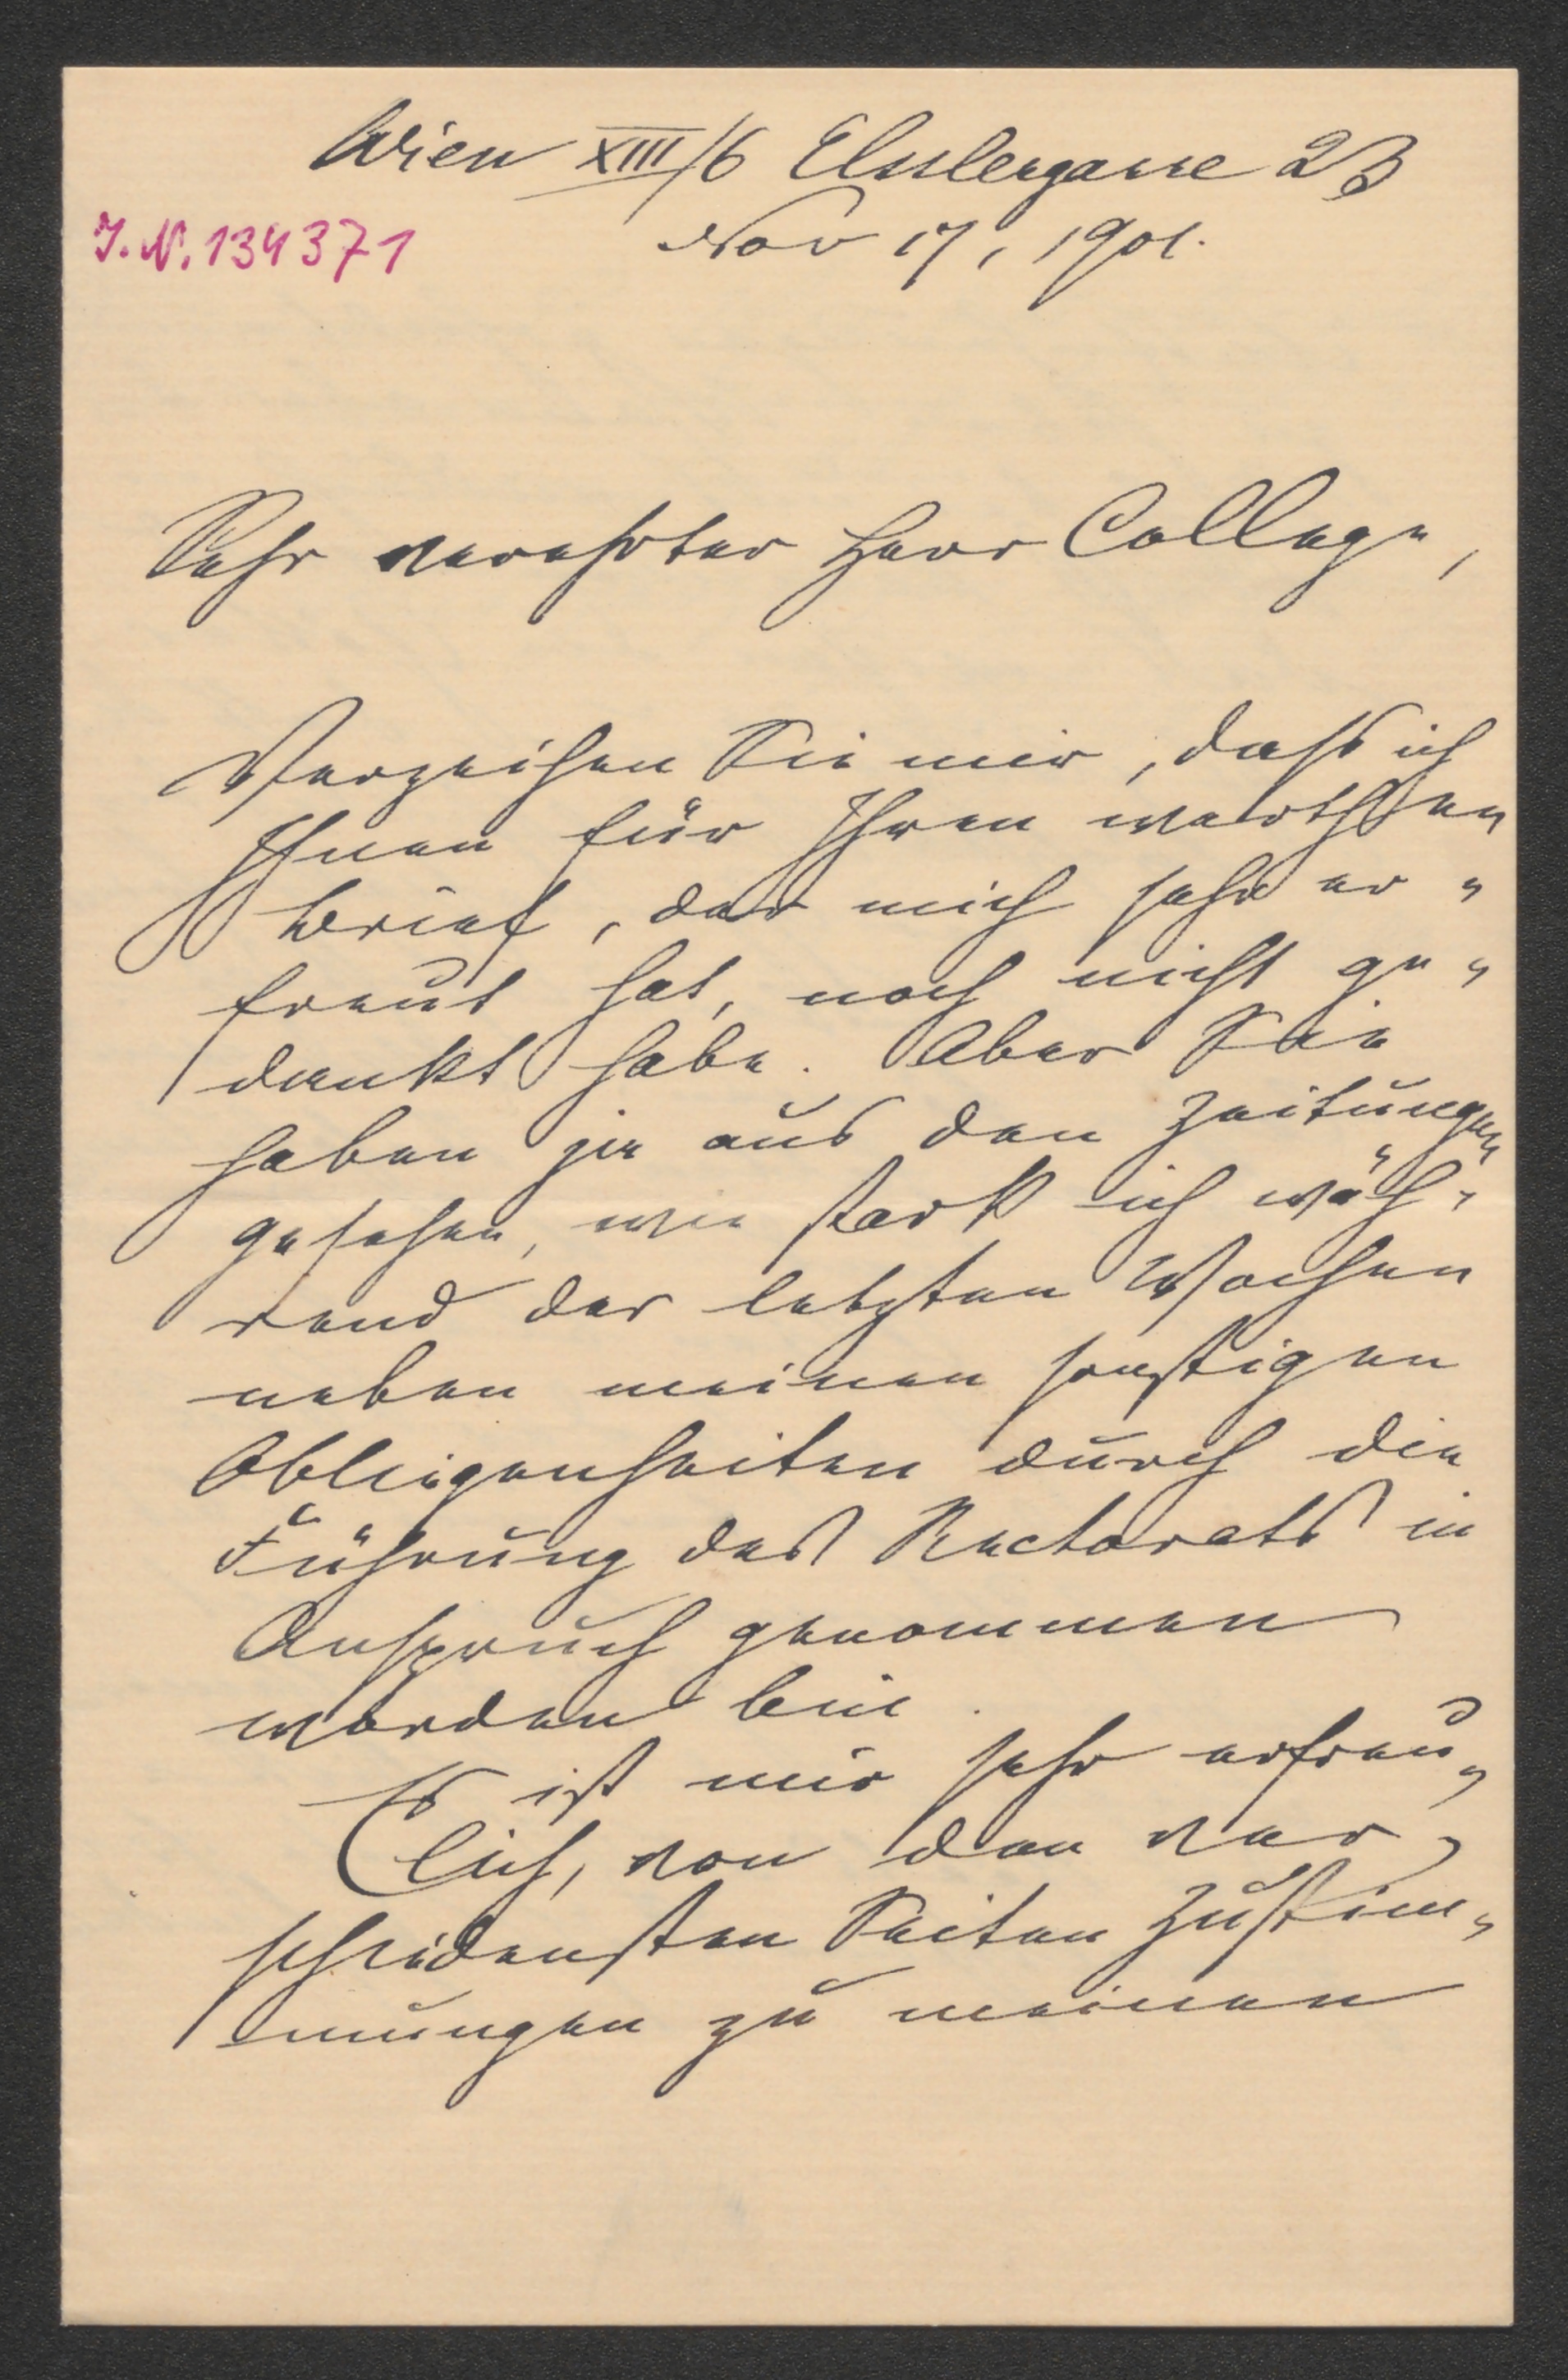 Wien XIII/6 Elsslergasse 23
J. N. 134371
Nov 17, 1901.
Sehr verehrter Herr College,
Verzeihen Sie mir, daß ich
Ihnen für Ihren werthen
Brief, der mich sehr er-
freut hat, noch nicht ge-
dankt habe. Aber Sie
haben ja aus den Zeitungen
gesehen, wie stark ich wäh-
rend der letzten Wochen
neben meinen sonstigen
Obliegenheiten durch die
Führung des Rectorats in
Anspruch genommen
worden bin.
Es ist mir sehr erfreu-
lich, von den ver-
schiedensten Seiten Zustim-
mungen zu meinen